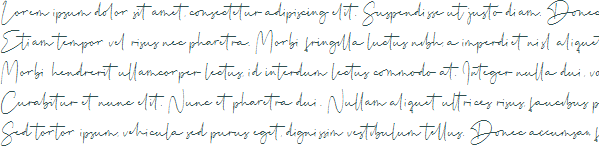 Lorem ipsum dolor sit amet, consectetur adipiscing elit. Suspendisse ut justo diam. Donec
Etiam tempor vel risus nec pharetra. Morbi fringilla luctus nibh, a imperdiet nisl aliquet
Morbi hendrerit ullamcorper lectus, id interdum lectus commodo at. Integer nulla dui, vo
Curabitur et nunc elit. Nunc et pharetra dui. Nullam aliquet ultrices risus, faucibus p
Sed tortor ipsum, vehicula sed purus eget, dignissim vestibulum tellus. Donec accumsan, f